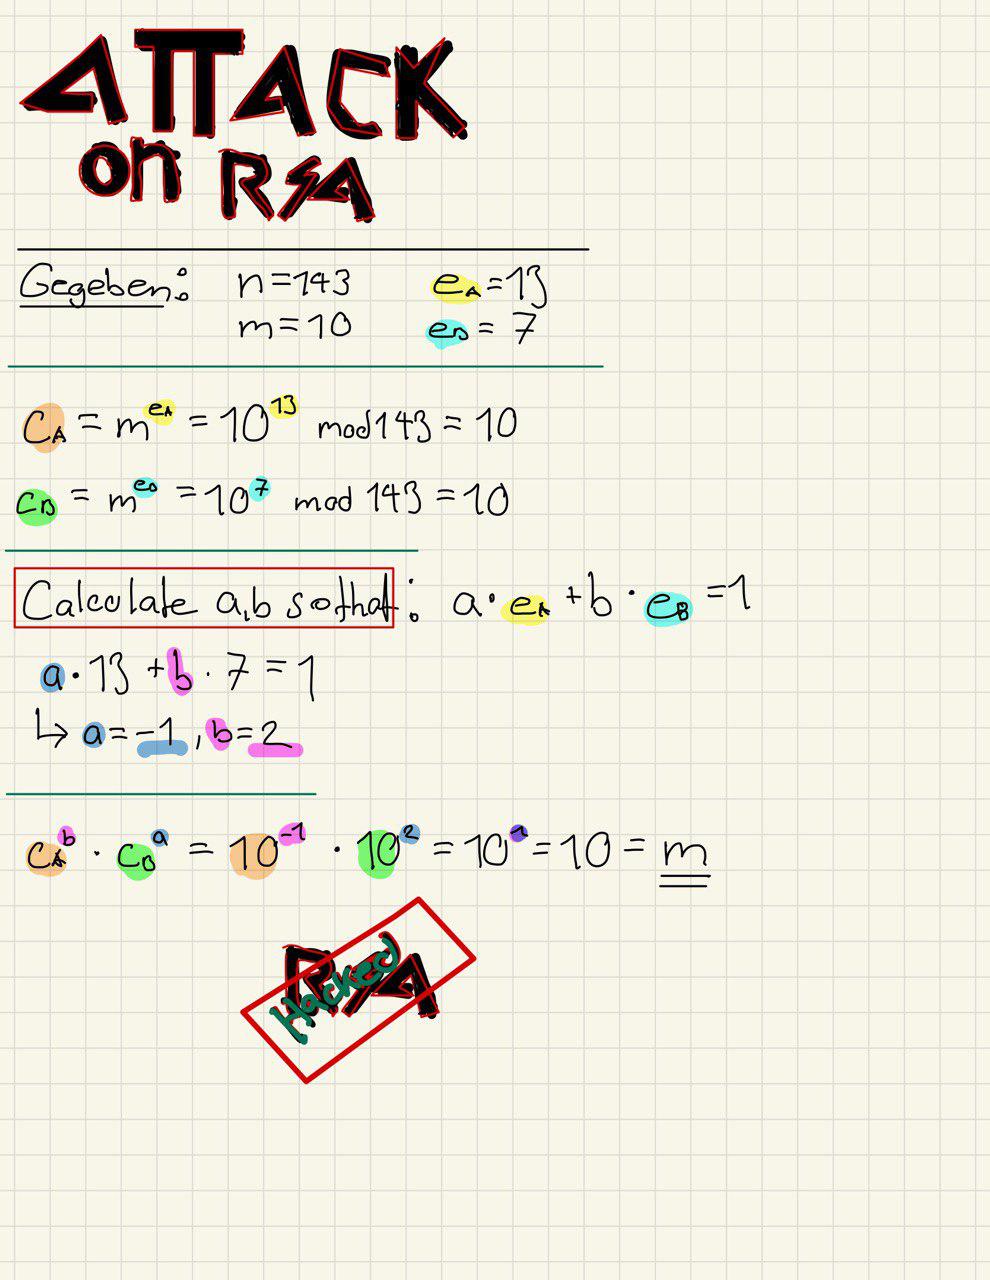 ATTACK
on RSA
Gegeben: n=143 e_A=13
m=10 e_B=7
C_A = m^e_A = 10^13 mod 143 = 10
C_B = m^e_B = 10^7 mod 143 = 10
Calculate a,b so that: a·e_A + b·e_B = 1
a·13 + b·7 = 1
↳ a=-1, b=2
C_A^b · C_B^a = 10^-1 · 10^2 = 10^1 = 10 = m
RSA
Hacked